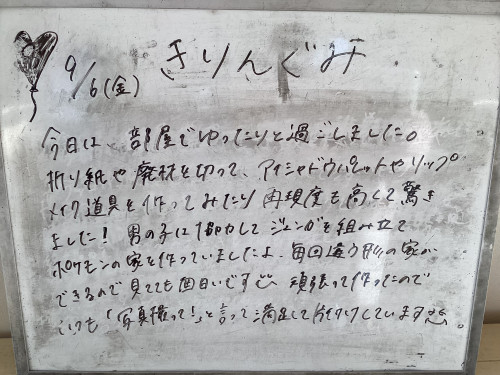 9/6(金) きりんぐみ
今日は、部屋でゆったりと過ごしました。
折り紙や廃材を切って、アイシャドウパレットやリップ
メイク道具を作ってみたり再現度も高くて驚き
ました! 男の子は協力してジェンガを組み立て
ポケモンの家を作っていましたよ。毎回違う形の家が
できるので見てても面白いです 頑張って作ったので
いつも「写真撮って!」と言って満足して片付けしています